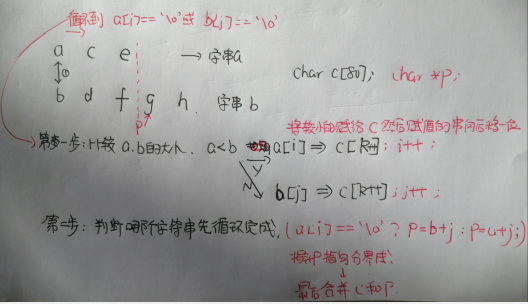 循环到 a[i]=='\0'或 b[j]=='\0'
a c e → 字串a
①
char c[80]; char *p;
b d f g h. 字串b
p
将较小的赋给 C 然后赋值的串向后移一位
第一步:比较 a.b的大小. a<b a[i] ⇒ c[k++]; i++;
Y
N
b[j] ⇒ c[k++]; j++;
第二步:判断哪个字符串先循环完成. (a[i]=='\0' ? p=b+j : p=a+j;)
指针p指向分界线
↓
最后合并 c 和 p.